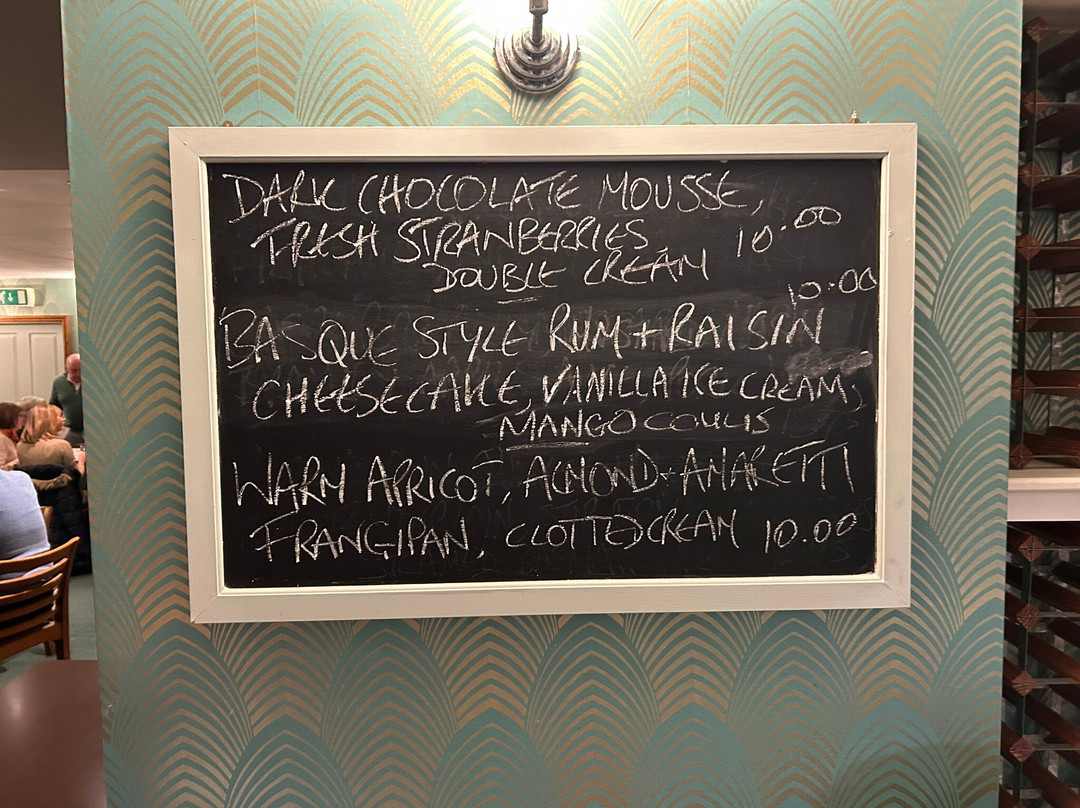 DARK CHOCOLATE MOUSSE,
FRESH STRANBERRIES 10.00
DOUBLE CREAM
10.00
BASQUE STYLE RUM + RAISIN
CHEESECAKE, VANILLA ICE CREAM,
MANGO COULIS
WARM APRICOT, ALMOND + AMARETTI
FRANGIPAN, CLOTTED CREAM 10.00